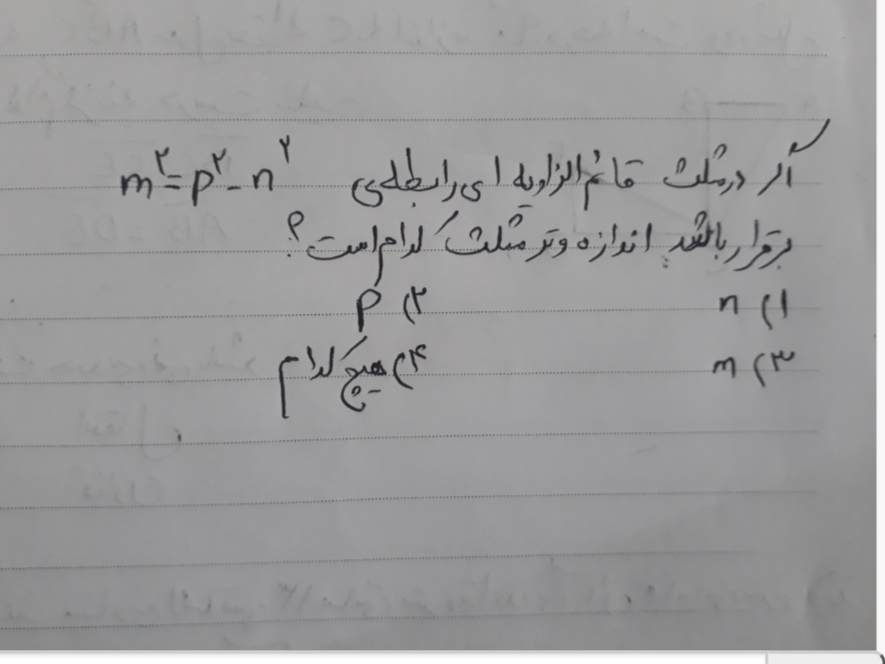 اگر در مثلث قائم الزاویه ای رابطه‌ی m²=p²-n²
برقرار باشد اندازه وتر مثلث کدام است؟
۱) n ۲) p
۳) m ۴) هیچ کدام